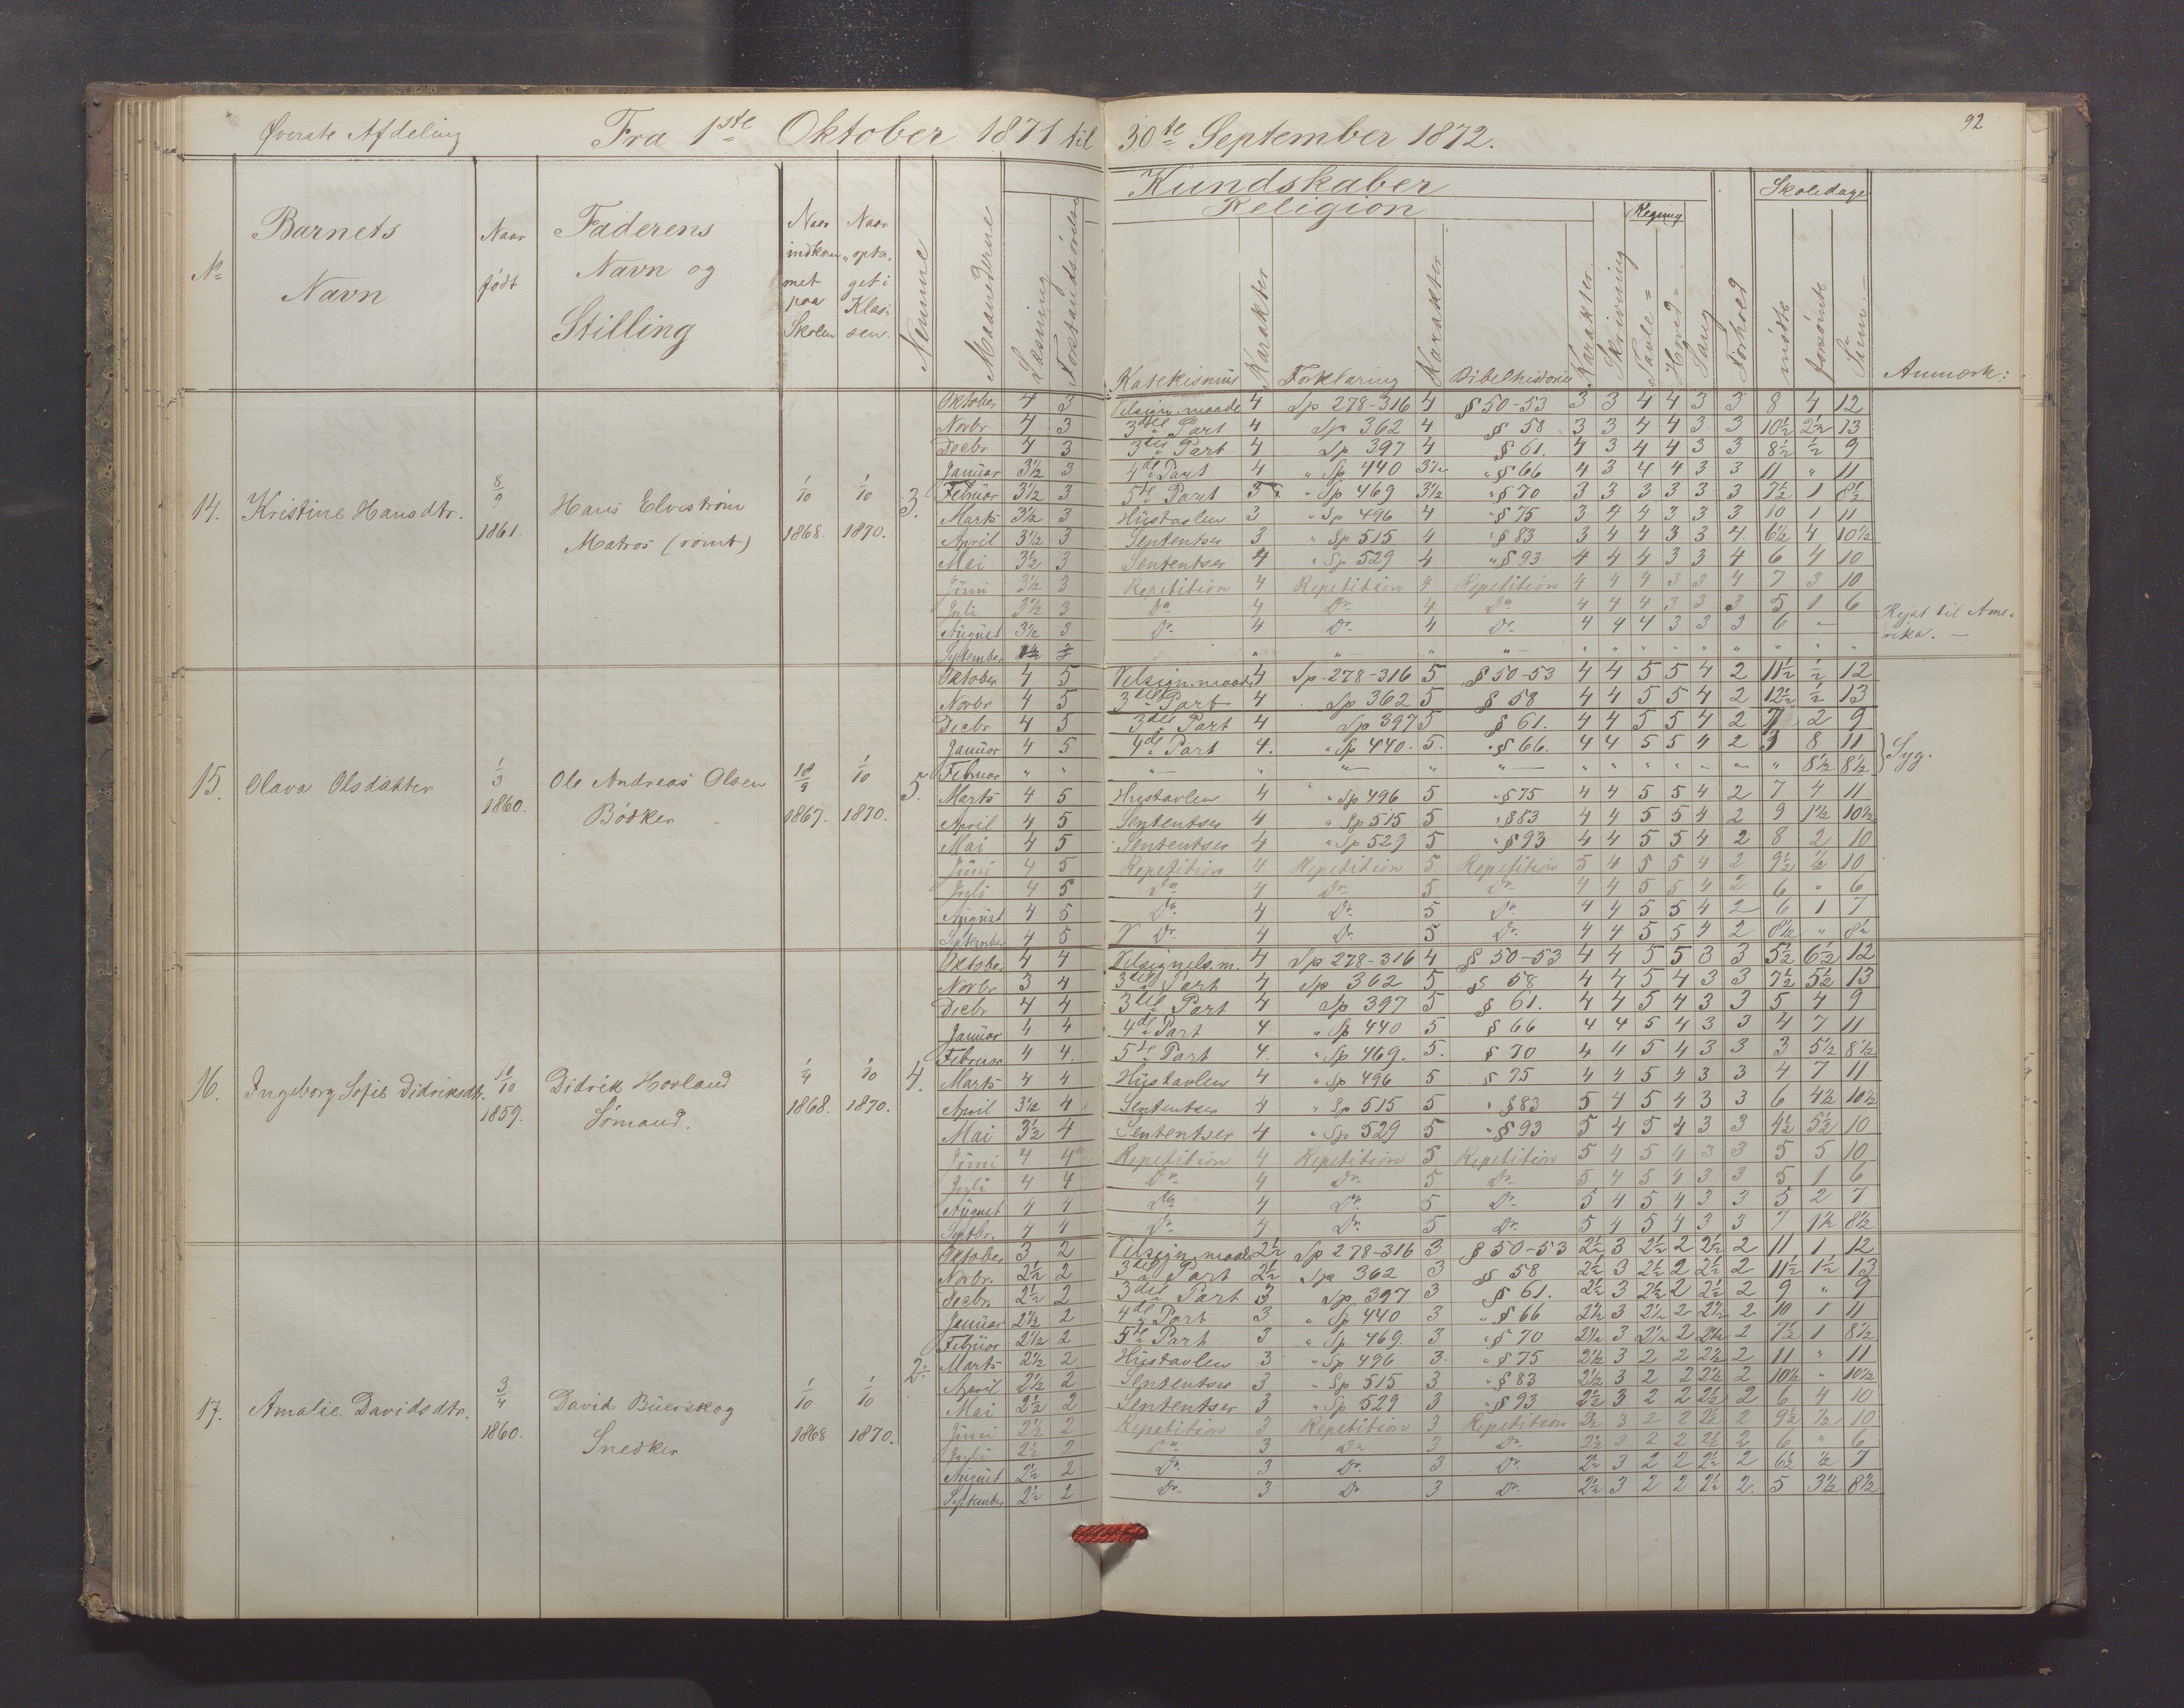 92
Øverste Afdeling Fra 1ste Oktober 1871 til 30te September 1872.
Kundskaber
Religion Regning Skoledage
No Barnets Navn Naar født Faderens Navn og Stilling Naar indkommet paa Skolen Naar optaget i Klassen. Nemme Maanederne Læsning Forstandsøvelse Katekismus Karakter Forklaring Karakter Bibelhistorie Karakter Skrivning Tavle= Hoved= Sang Forhold mødte forsømte Sum. Anmærk:
14. Kristine Hansdtr. 8/9 1861. Hans Elvestrøm Matros (rømt) 1/10 1868. 1/10 1870. 3.
Oktober 4 3 Velsign.maade 4 Sp 278-316 4 § 50-53 3 3 4 4 3 3 8 4 12
Novbr 4 3 3die Part 4 Sp 362 4 § 58 3 3 4 4 3 3 10½ 2½ 13
Decbr 4 3 3die Part 4 Sp 397 4 § 61. 4 3 4 4 3 3 8½ ½ 9
Januar 3½ 3 4de Part 4 " Sp 440 3½ " § 66 4 3 4 4 3 3 11 " 11
Februar 3½ 3 5te Part 3 " Sp 469 3½ " § 70 3 3 3 3 3 3 7½ 1 8½
Marts 3½ 3 Hustavlen 3 " Sp 496 4 " § 75 3 4 4 3 3 3 10 1 11
April 3½ 3 Sententser 3 " Sp 515 4 " § 83 3 4 4 3 3 4. 6½ 4 10½
Mai 3½ 3 Sententser 4 " Sp 529 4 " § 93 4 4 4 3 3 4 6 4 10
Juni 3½ 3 Repetition 4 Repetition 4 Repetition 4 4 4 3 3 4 7 3 10
Juli 3½ 3 Do 4 Do 4 Do 4 4 4 3 3 3 5 1 6
August 3½ 3 Do 4 Do 4 Do 4 4 4 3 3 3 6 — Rejst til Amerika. —
September " " " " " " " " " " " " " "
15. Olava Olsdatter 1/3 1860. Ole Andreas Olsen Bødker 18/9 1867. 1/10 1870. 5.
Oktober 4 5 Velsign.maade 4 Sp. 278-316 5 § 50-53 4 4 5 5 4 2 11½ ½ 12
Novbr 4 5 3die Part 4 Sp 362 5 § 58 4 4 5 5 4 2 12½ ½ 13
Decbr 4 5 3die Part 4 Sp 397 5 § 61. 4 4 5 5 4 2 7 2 9
Januar 4 5 4de Part 4. " Sp 440. 5. " § 66. 4 4 5 5 4 2 3 8 11
Februar " " " — " " — " " — " " " " " " " 8½ 8½ } Syg.
Marts 4 5 Hustavlen 4 " Sp 496 5 " § 75 4 4 5 5 4 2 7 4 11
April 4 5 Sententser 4 " Sp 515 5 " § 83 4 4 5 5 4 2 9 1½ 10½
Mai 4 5 Sententser 4 " Sp 529 5 " § 93 4 4 5 5 4 2 8 2 10
Juni 4 5 Repetition 4 Repetition 5 Repetition 5 4 5 5 4 2 9½ ½ 10
Juli 4 5 Do 4 Do 5 Do 4 4 5 5 4 2 6 " 6
August 4 5 Do 4 Do 5 Do 4 4 5 5 4 2 6 1 7
September 4 5 Do 4 Do 5 Do 4 4 5 5 4 2 8½ " 8½
16. Ingeborg Sofie Didriksdtr. 18/10 1859. Didrik Hovland Sømand. 1/4 1868. 1/10 1870. 4.
Oktober 4 4 Velsignels.m. 4 Sp 278-316 4 § 50-53 4 4 5 5 3 3 5½ 6½ 12
Novbr 3 4 3die Part 4 Sp 362 5 § 58 4 4 5 4 3 3 7½ 5½ 13
Decbr 4 4 3die Part 4 Sp 397 5 § 61. 4 4 5 4 3 3 5 4 9
Januar 4 4 4de Part 4 " Sp 440 5 § 66 4 4 5 4 3 3 4 7 11
Februar 4 4. 5te Part 4. " Sp 469. 5. § 70 4 4 5 4 3 3 3 5½ 8½
Marts 4 4 Hustavlen 4 " Sp 496 5 § 75 4 4 5 4 3 3 4 7 11
April 3½ 4 Sententser 4 " Sp 515 5 " § 83 5 4 5 4 3 3 6 4½ 10½
Mai 3½ 4 Sententser 4 " Sp 529 5 " § 93 5 4 5 4 3 3 4½ 5½ 10
Juni 4 4 Repetition 4 Repetition 5 Repetition 5 4 5 4 3 3 5 5 10
Juli 4 4 Do 4 Do 5 Do 5 4 5 4 3 3 5 1 6
August 4 4 Do 4 Do 5 Do 5 4 5 4 3 3 5 2 7
Septbr. 4 4 Do 4 Do 5 Do 5 4 5 4 3 3 7 1½ 8½
17. Amalie Davidsdtr. 3/4 1860. David Buerskog Snedker 1/10 1868 1/10 1870. 2.
Oktober 3 2 Velsign.maade 2½ Sp 278-316 3 § 50-53 2½ 3 2½ 2 2½ 2 11 1 12
Novbr. 2½ 2 3die Part 2½ Sp 362 3 § 58 2½ 3 2½ 2 2½ 2 11½ 1½ 13
Decbr 2½ 2 3die Part 3 Sp 397 3 § 61. 2½ 3 2½ 2 2½ 2 9 " 9
Januar 2½ 2 4de Part 3 " Sp 440 3 " § 66 2½ 3 2½ 2 2½ 2 10 1 11
Februar 2½ 2 5te Part 3 " Sp 469. 3 " § 70 2½ 3 2½ 2 2½ 2 7½ 1 8½
Marts 2½ 2 Hustavlen 3 " Sp 496 3. " § 75 2½ 3 2 2 2½ 2 11 " 11
April 2½ 2 Sententser 3 " Sp 515 3 " § 83 2½ 3 2 2 2½ 2 10½ " 10½
Mai 2½ 2 Sententser 3 " Sp 529 3 " § 93 2½ 3 2 2 2½ 2 6 4 10
Juni 2½ 2 Repetition 3 Repetition 3 Repetition 2½ 3 2 2 2½ 2 9½ ½ 10
Juli 2½ 2 Do 3 Do 3 Do 2½ 3 2 2 2½ 2 6 " 6
August 2½ 2 Do 3 Do 3 Do 2½ 3 2 2 2½ 2 6½ ½ 7
September 2½ 2 Do 3 Do 3 Do 2½ 3 2 2 2½ 2. 5 3½ 8½